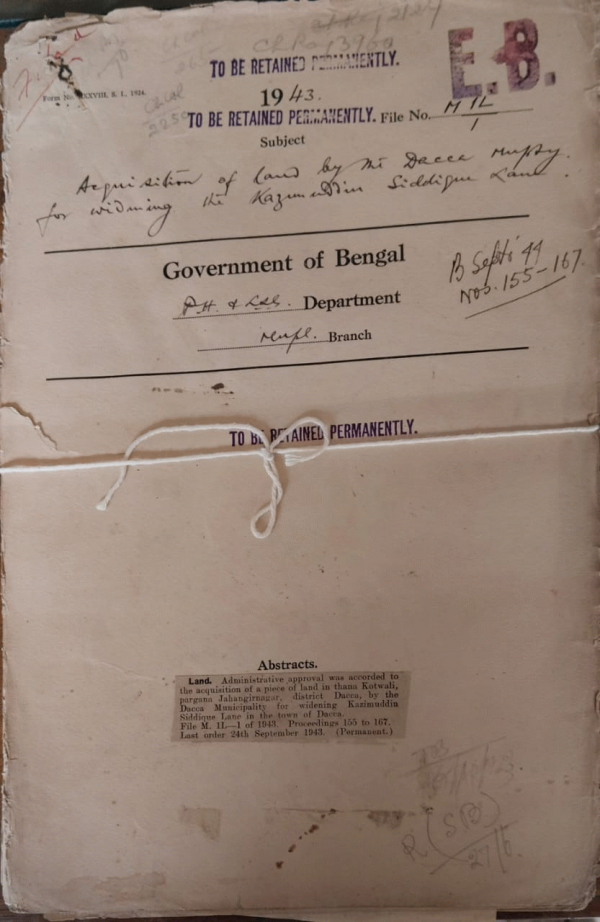 TO BE RETAINED PERMANENTLY.
E.B.
Form No. XXXVIII. S. 1. 1924.
1943.
TO BE RETAINED PERMANENTLY. File No. M 1L/1
Subject
Acquisition of land by the Dacca Mupty.
for widening the Kazimuddin Siddique Lane.
Government of Bengal
P.H. & L.S.G. Department
Mupl. Branch
B Sept '44
Nos. 155-167.
TO BE RETAINED PERMANENTLY.
Abstracts.
Land. Administrative approval was accorded to
the acquisition of a piece of land in thana Kotwali,
pargana Jahangirnagar, district Dacca, by the
Dacca Municipality for widening Kazimuddin
Siddique Lane in the town of Dacca.
File M. 1L—1 of 1943. Proceedings 155 to 167.
Last order 24th September 1943. (Permanent.)
R (SB)
27/6